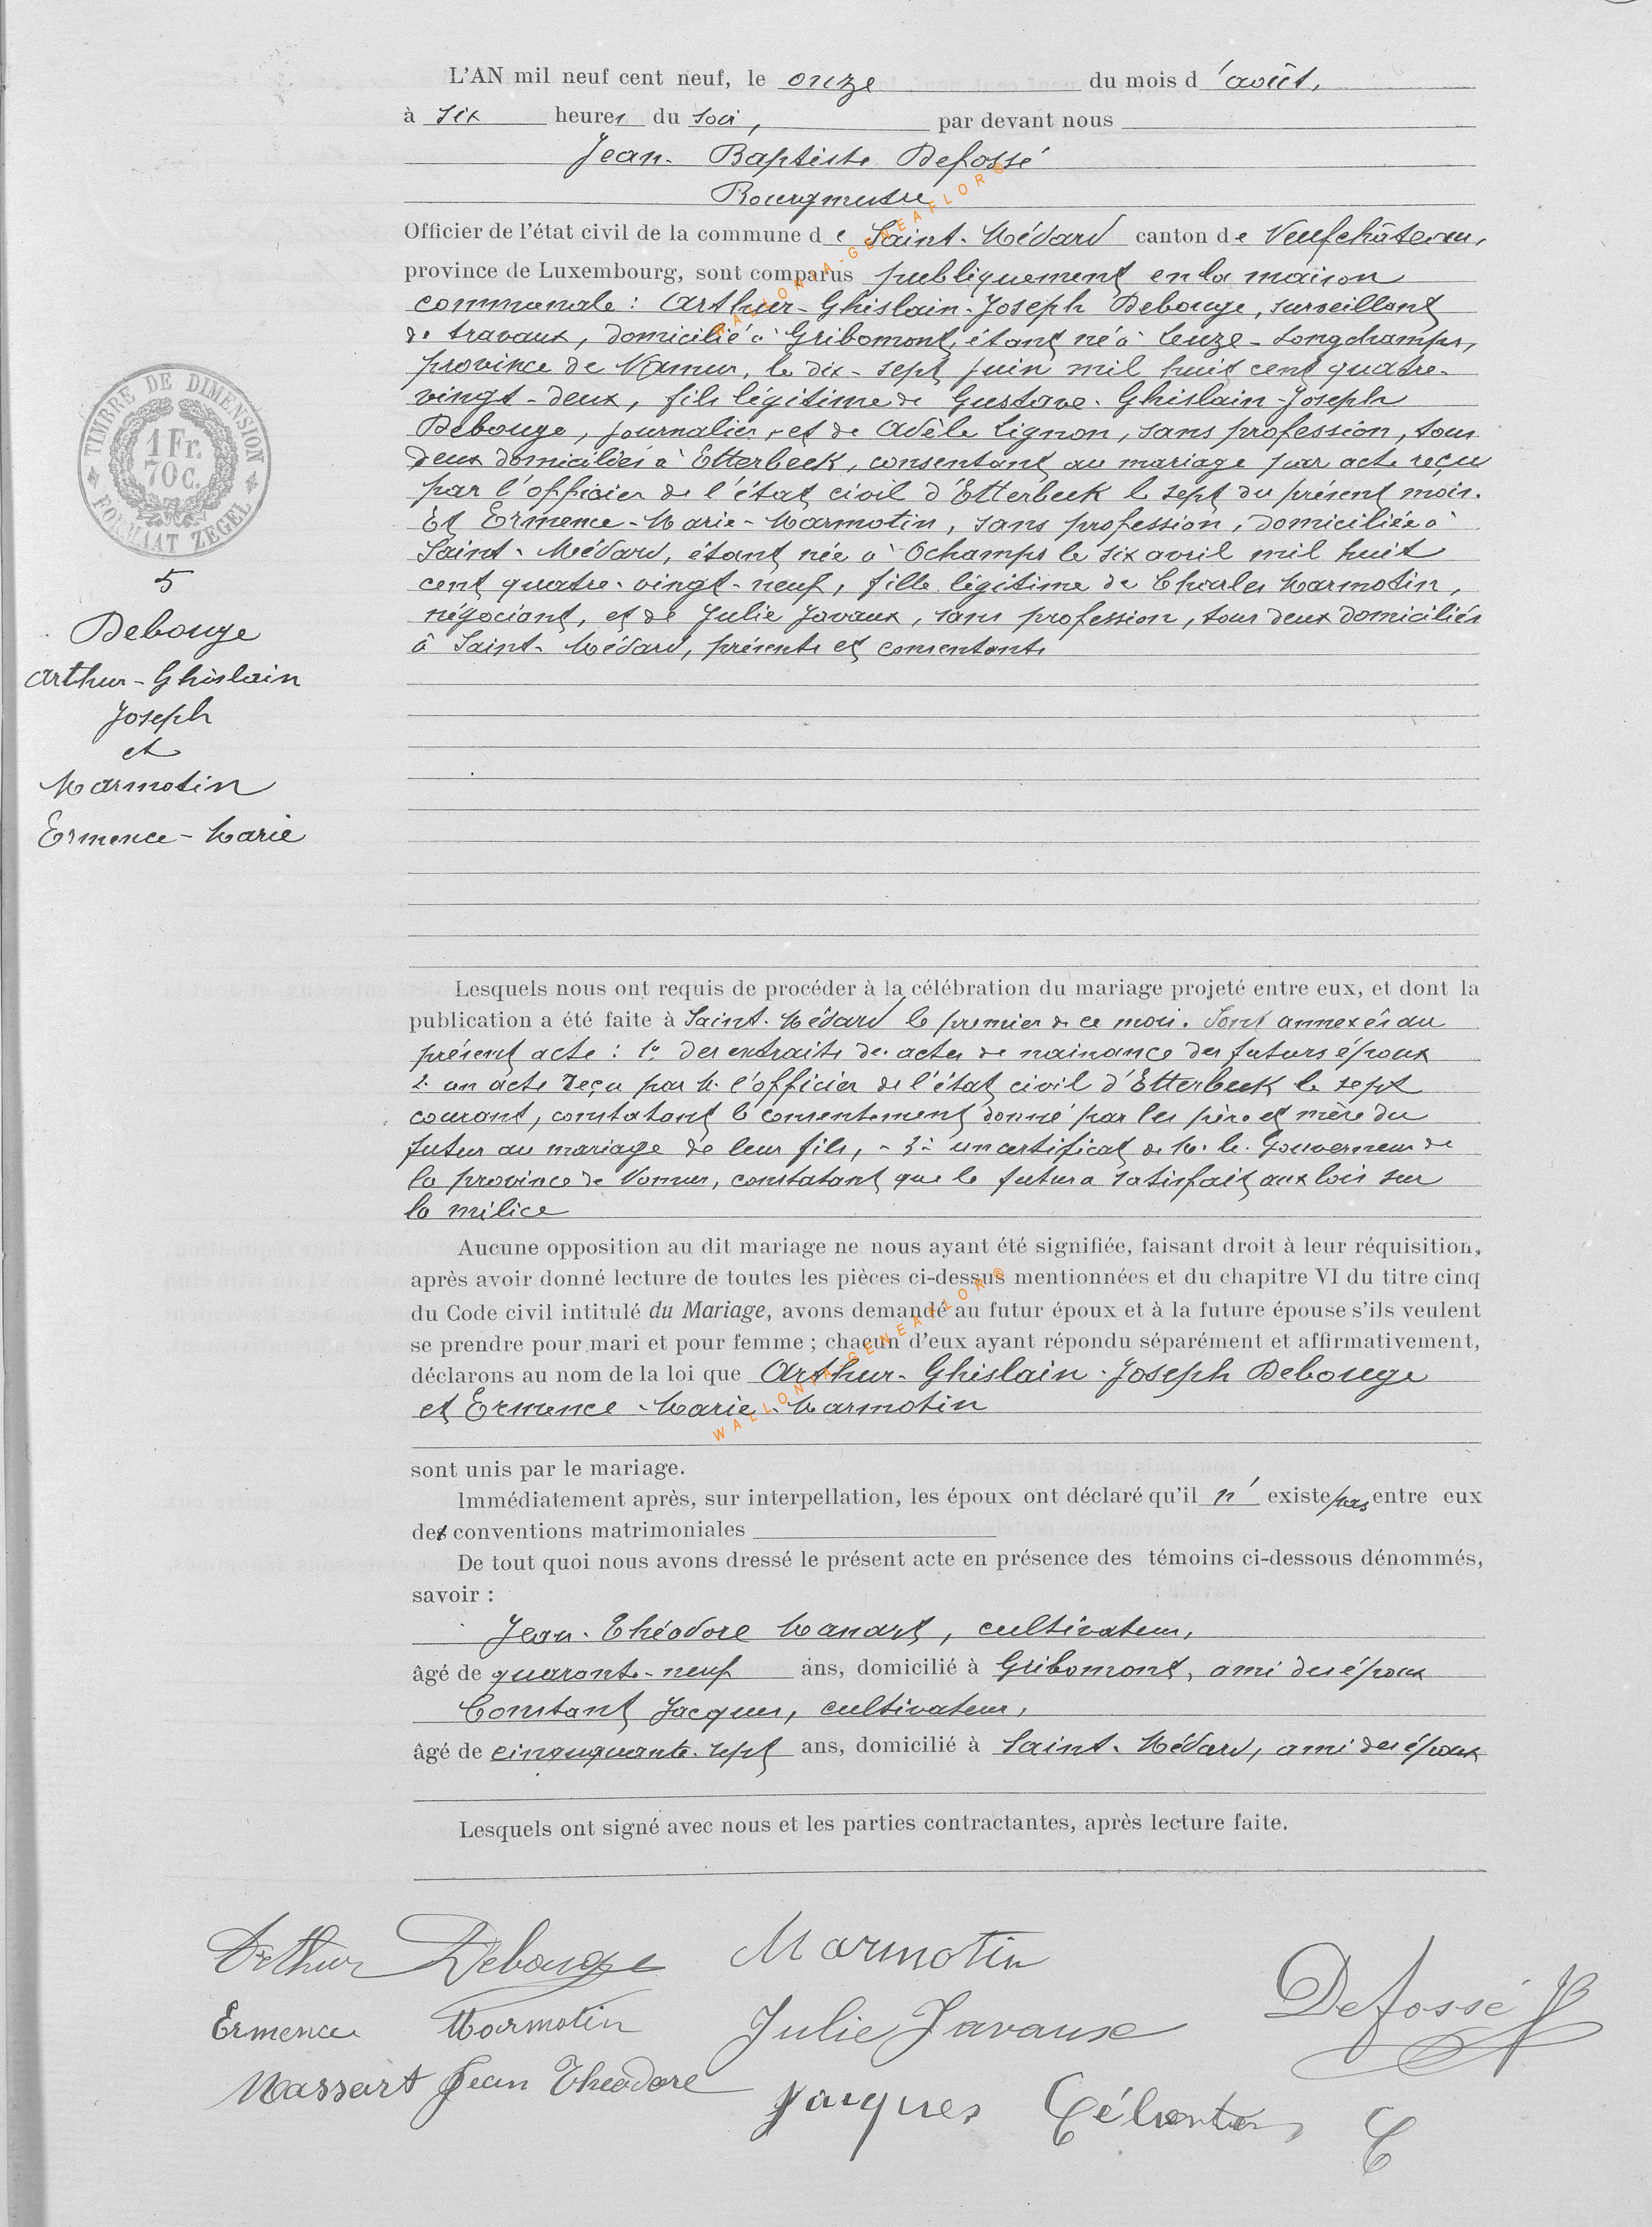 L'AN mil neuf cent neuf, le onze du mois d'août,
à six heures du soir, par devant nous
Jean-Baptiste Defossé
Bourgmestre
Officier de l'état civil de la commune de Saint-Médard canton de Neufchâteau,
province de Luxembourg, sont comparus publiquement en la maison
communale : Arthur-Ghislain-Joseph Debouge, surveillant
de travaux, domicilié à Gribomont, étant né à Leuze-Longchamps,
province de Namur, le dix-sept juin mil huit cent quatre-
vingt-deux, fils légitime de Gustave-Ghislain-Joseph
Debouge, journalier, et de Adèle Lignon, sans profession, tous
deux domiciliés à Etterbeek, consentant au mariage par acte reçu
par l'officier de l'état civil d'Etterbeek le sept du présent mois.
Et Ermence-Marie-Marmotin, sans profession, domiciliée à
Saint-Médard, étant née à Ochamps le six avril mil huit
cent quatre-vingt-neuf, fille légitime de Charles Marmotin,
négociant, et de Julie Javaux, sans profession, tous deux domiciliés
à Saint-Médard, présents et consentants
TIMBRE DE DIMENSION
1 Fr.
70 C.
FORMAAT ZEGEL
5
Debouge
Arthur-Ghislain
Joseph
et
Marmotin
Ermence-Marie
Lesquels nous ont requis de procéder à la célébration du mariage projeté entre eux, et dont la
publication a été faite à Saint-Médard le premier de ce mois. Sont annexés au
présent acte : 1° des extraits des actes de naissance des futurs époux
2° un acte reçu par M. l'officier de l'état civil d'Etterbeek le sept
courant, constatant le consentement donné par les père et mère du
futur au mariage de leur fils, - 3° un certificat de M. le Gouverneur de
la province de Namur, constatant que le futur a satisfait aux lois sur
la milice
Aucune opposition au dit mariage ne nous ayant été signifiée, faisant droit à leur réquisition,
après avoir donné lecture de toutes les pièces ci-dessus mentionnées et du chapitre VI du titre cinq
du Code civil intitulé du Mariage, avons demandé au futur époux et à la future épouse s'ils veulent
se prendre pour mari et pour femme ; chacun d'eux ayant répondu séparément et affirmativement,
déclarons au nom de la loi que Arthur-Ghislain-Joseph Debouge
et Ermence-Marie-Marmotin
sont unis par le mariage.
Immédiatement après, sur interpellation, les époux ont déclaré qu'il n'existe pas entre eux
de conventions matrimoniales
De tout quoi nous avons dressé le présent acte en présence des témoins ci-dessous dénommés,
savoir :
Jean-Théodore Massart, cultivateur,
âgé de quarante-neuf ans, domicilié à Gribomont, ami des époux
Constant Jacques, cultivateur,
âgé de cinquante-sept ans, domicilié à Saint-Médard, ami des époux
Lesquels ont signé avec nous et les parties contractantes, après lecture faite.
Arthur Debouge Marmotin
Defossé JB
Ermence Marmotin Julie Javaux
Massart Jean Théodore
Jacques
WALLONIA-GENEAFLOR®
WALLONIA-GENEAFLOR®